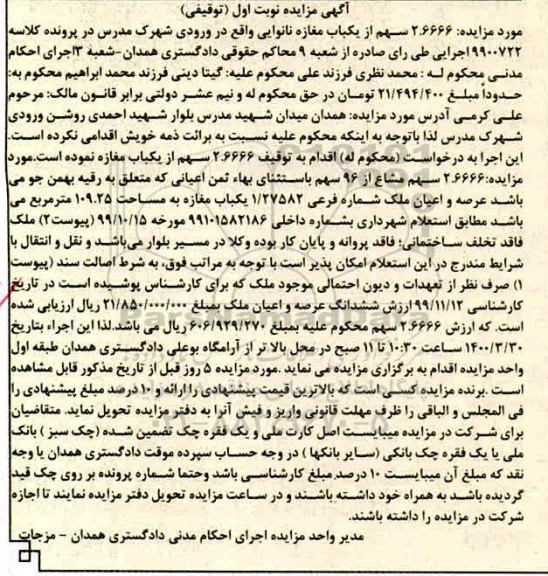 آگهی مزایده نوبت اول (توقیفی)
مورد مزایده: ۲.۶۶۶۶ سهم از یکباب مغازه نانوایی واقع در ورودی شهرک مدرس در پرونده کلاسه
۹۹۰۰۷۲۲ اجرایی طی رای صادره از شعبه ۹ محاکم حقوقی دادگستری همدان-شعبه ۳ اجرای احکام
مدنی محکوم له : محمد نظری فرزند علی محکوم علیه: گیتا دینی فرزند محمد ابراهیم محکوم به:
حدوداً مبلغ ۲۱/۴۹۴/۴۰۰ تومان در حق محکوم له و نیم عشر دولتی برابر قانون مالک: مرحوم
علی کرمی آدرس مورد مزایده: همدان میدان شهید مدرس بلوار شهید احمدی روشن ورودی
شهرک مدرس لذا باتوجه به اینکه محکوم علیه نسبت به برائت ذمه خویش اقدامی نکرده است.
این اجرا به درخواست (محکوم له) اقدام به توقیف ۲.۶۶۶۶ سهم از یکباب مغازه نموده است.مورد
مزایده:۲.۶۶۶۶ سهم مشاع از ۹۶ سهم باستثنای بهاء ثمن اعیانی که متعلق به رقیه بهمن جو می
باشد عرصه و اعیان ملک شماره فرعی ۱/۲۷۵۸۲ یکباب مغازه به مساحت ۱۰۹.۲۵ مترمربع می
باشد مطابق استعلام شهرداری بشماره داخلی ۹۹۱۰۱۵۸۲۱۸۶ مورخه ۹۹/۱۰/۱۵ (پیوست۲) ملک
فاقد تخلف ساختمانی؛ فاقد پروانه و پایان کار بوده وکلا در مسیر بلوار می‌باشد و نقل و انتقال با
شرایط مندرج در این استعلام امکان پذیر است با توجه به مراتب فوق، به شرط اصالت سند (پیوست
۱) صرف نظر از تعهدات و دیون احتمالی موجود ملک که برای کارشناس پوشیده است در تاریخ
کارشناسی ۹۹/۱۱/۱۲ ارزش ششدانگ عرصه و اعیان ملک بمبلغ ۲۱/۸۵۰/۰۰۰/۰۰۰ ریال ارزیابی شده
است. که ارزش ۲.۶۶۶۶ سهم محکوم علیه بمبلغ ۶۰۶/۹۲۹/۲۷۰ ریال می باشد.لذا این اجراء بتاریخ
۱۴۰۰/۳/۳۰ ساعت ۱۰:۳۰ تا ۱۱ صبح در محل بالا تر از آرامگاه بوعلی دادگستری همدان طبقه اول
واحد مزایده اقدام به برگزاری مزایده می نماید .مورد مزایده ۵ روز قبل از تاریخ مذکور قابل مشاهده
است .برنده مزایده کسی است که بالاترین قیمت پیشنهادی را ارائه و ۱۰ درصد مبلغ پیشنهادی را
فی المجلس و الباقی را ظرف مهلت قانونی واریز و فیش آنرا به دفتر مزایده تحویل نماید. متقاضیان
برای شرکت در مزایده میبایست اصل کارت ملی و یک فقره چک تضمین شده (چک سبز ) بانک
ملی یا یک فقره چک بانکی (سایر بانکها ) در وجه حساب سپرده موقت دادگستری همدان یا وجه
نقد که مبلغ آن میبایست ۱۰ درصد.مبلغ کارشناسی باشد وحتما شماره پرونده بر روی چک قید
گردیده باشد به همراه خود داشته باشند و در ساعت مزایده تحویل دفتر مزایده نمایند تا اجازه
شرکت در مزایده را داشته باشند.
مدیر واحد مزایده اجرای احکام مدنی دادگستری همدان - مزجات